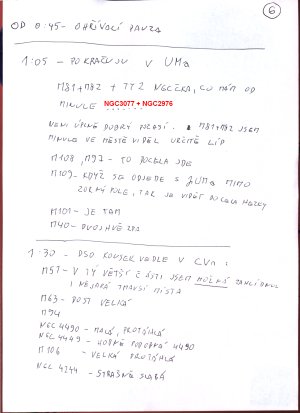 6
OD 0:45 - OHŘÍVACÍ PAUZA
1:05 - POKRAČUJU V UMa
M81+M82 + TY 2 NGCČKA, CO MÁM OD
MINULE NGC3077 + NGC2976
NENÍ ÚPLNĚ DOBRÝ POČASÍ. M81+M82 JSEM
MINULE VE MĚSTĚ VIDĚL URČITĚ LÍP
M108, M97 - TO DOCELA JDE
M109 - KDYŽ SE ODJEDE S γ UMa MIMO
ZORNÝ POLE, TAK JE VIDĚT DOCELA HEZKY
M101 - JE TAM
M40 - DVOJHVĚZDA
1:30 - DSO KOUSEK VEDLE V CVn:
M51 - V TÝ VĚTŠÍ ČÁSTI JSEM MOŽNÁ
I NĚJAKÁ TMAVŠÍ MÍSTA
M63 - DOST VELKÁ
M94
NGC 4490 - MALÁ, PROTÁHLÁ
NGC 4449 - HODNĚ PODOBNÁ 4490
M106 - VELKÁ PROTÁHLÁ
NGC 4244 - STRAŠNĚ SLABÁ